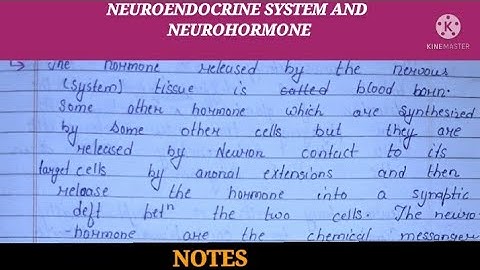 NEUROENDOCRINE SYSTEM AND
NEUROHORMONE
KINEMASTER
The hormone released by the nervous
(system) tissue is called blood born.
Some other hormone which are synthesized
by some other cells but they are
released by Neuron contact to its
target cells by axonal extensions and then
release the hormone into a synaptic
cleft betn the two cells. The neuro
-hormone are the chemical messanger
NOTES